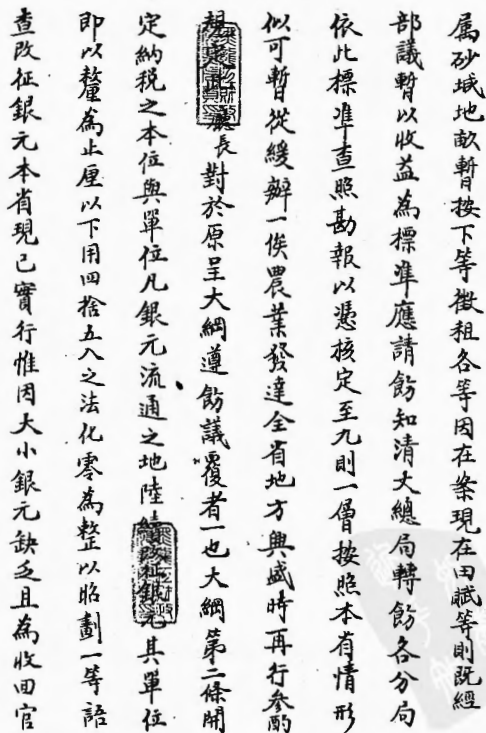 属砂城地畝暫按下等徵租各等因在案現在田賦等則既經
部議暫以收益為標準應請飭知清丈總局轉飭各分局
依此標準查照勘報以憑核定至九則一層按照本省情形
似可暫從緩辦一俟農業發達全省地方興盛時再行參酌
規定此廳長對於原呈大綱遵飭議覆者一也大綱第二條開
定納稅之本位與單位凡銀元流通之地陸續改征銀元其單位
即以釐為止厘以下用四捨五入之法化零為整以昭劃一等語
查改征銀元本省現已實行惟因大小銀元缺乏且為收回官